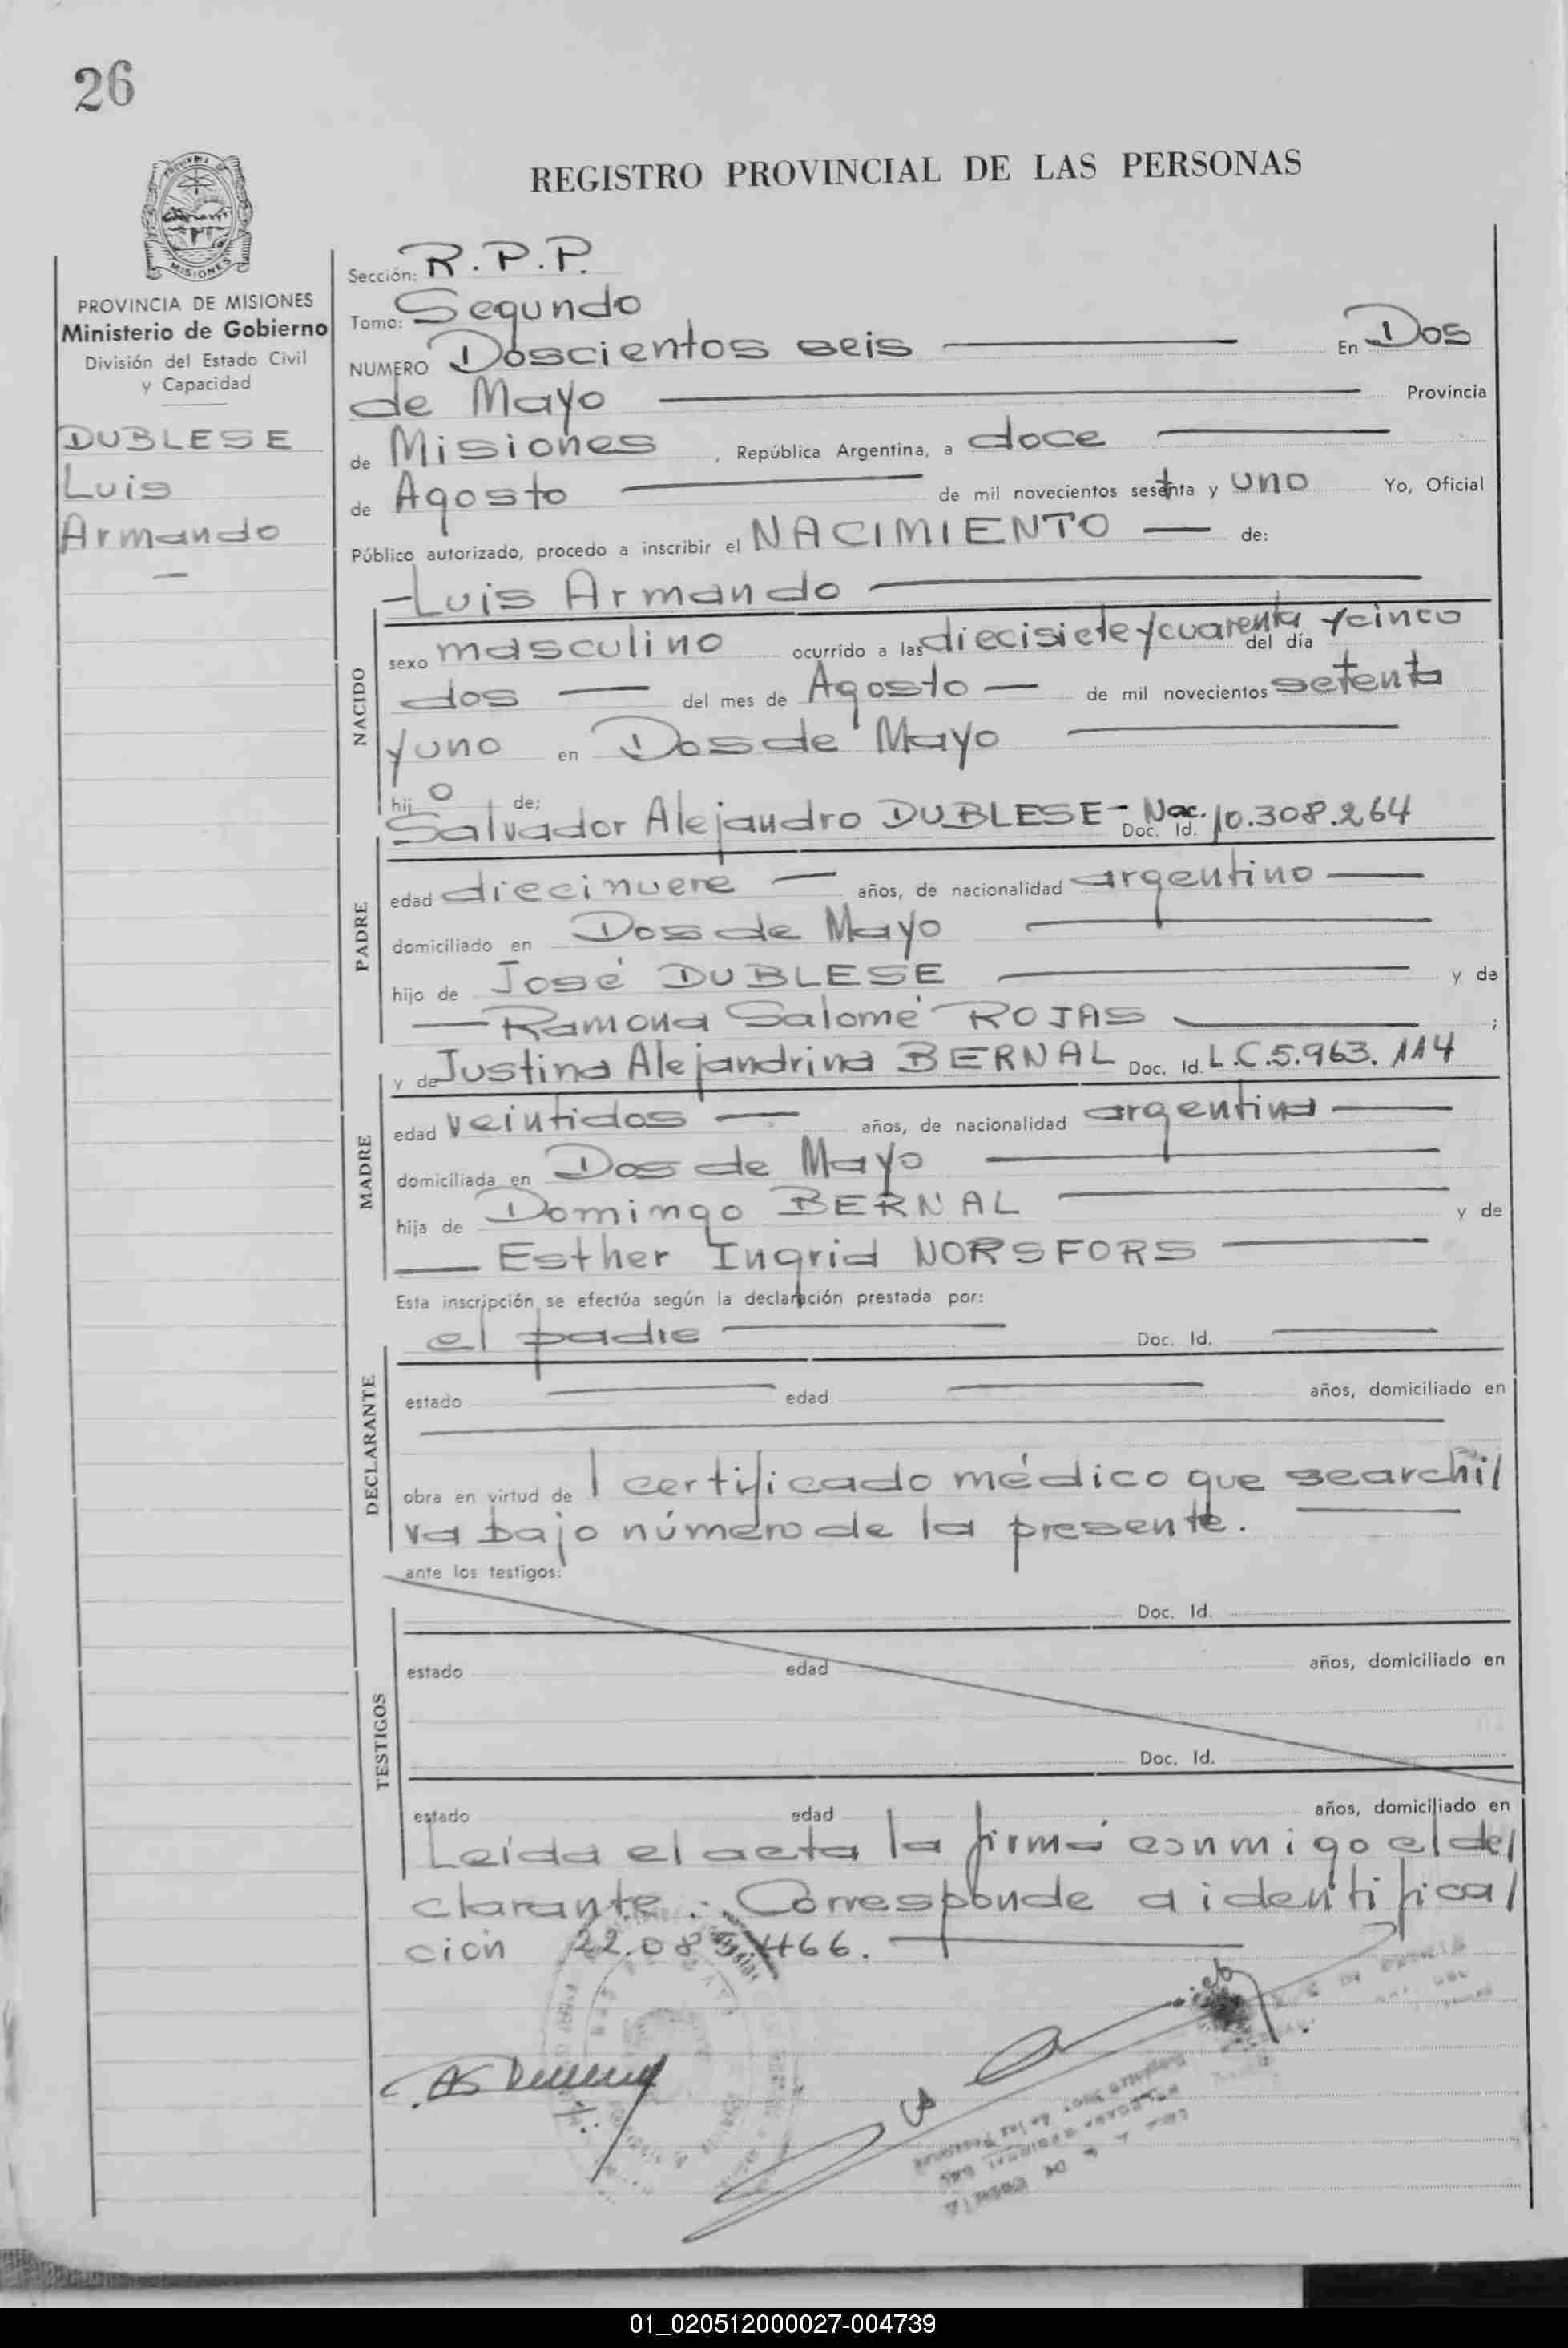 26
REGISTRO PROVINCIAL DE LAS PERSONAS
MISIONES
PROVINCIA DE MISIONES
Ministerio de Gobierno
División del Estado Civil
y Capacidad
DUBLESE
Luis
Armando
Sección: R.P.P.
Tomo: Segundo
NUMERO Doscientos seis En Dos
de Mayo Provincia
de Misiones, República Argentina, a doce
de Agosto de mil novecientos setenta y uno Yo, Oficial
Público autorizado, procedo a inscribir el NACIMIENTO de:
Luis Armando
NACIDO
sexo masculino ocurrido a las diecisiete y cuarenta y cinco del día
dos del mes de Agosto de mil novecientos setenta
y uno en Dos de Mayo
hijo de:
Salvador Alejandro DUBLESE - Doc. Id. 10.308.264
PADRE
edad diecinueve años, de nacionalidad argentino
domiciliado en Dos de Mayo
hijo de José DUBLESE y de
Ramona Salomé ROJAS ;
y de Justina Alejandrina BERNAL Doc. Id. L.C.5.963.114
MADRE
edad veintidos años, de nacionalidad argentina
domiciliada en Dos de Mayo
hija de Domingo BERNAL y de
Esther Ingrid NORSFORS
Esta inscripción se efectúa según la declaración prestada por:
el padre Doc. Id.
DECLARANTE
estado edad años, domiciliado en
obra en virtud de l certificado médico que se archi/
va bajo número de la presente.
ante los testigos:
Doc. Id.
TESTIGOS
estado edad años, domiciliado en
Doc. Id.
estado edad años, domiciliado en
Leída el acta la firma conmigo el de/
clarante. Corresponde a identifica/
ción
01_020512000027-004739